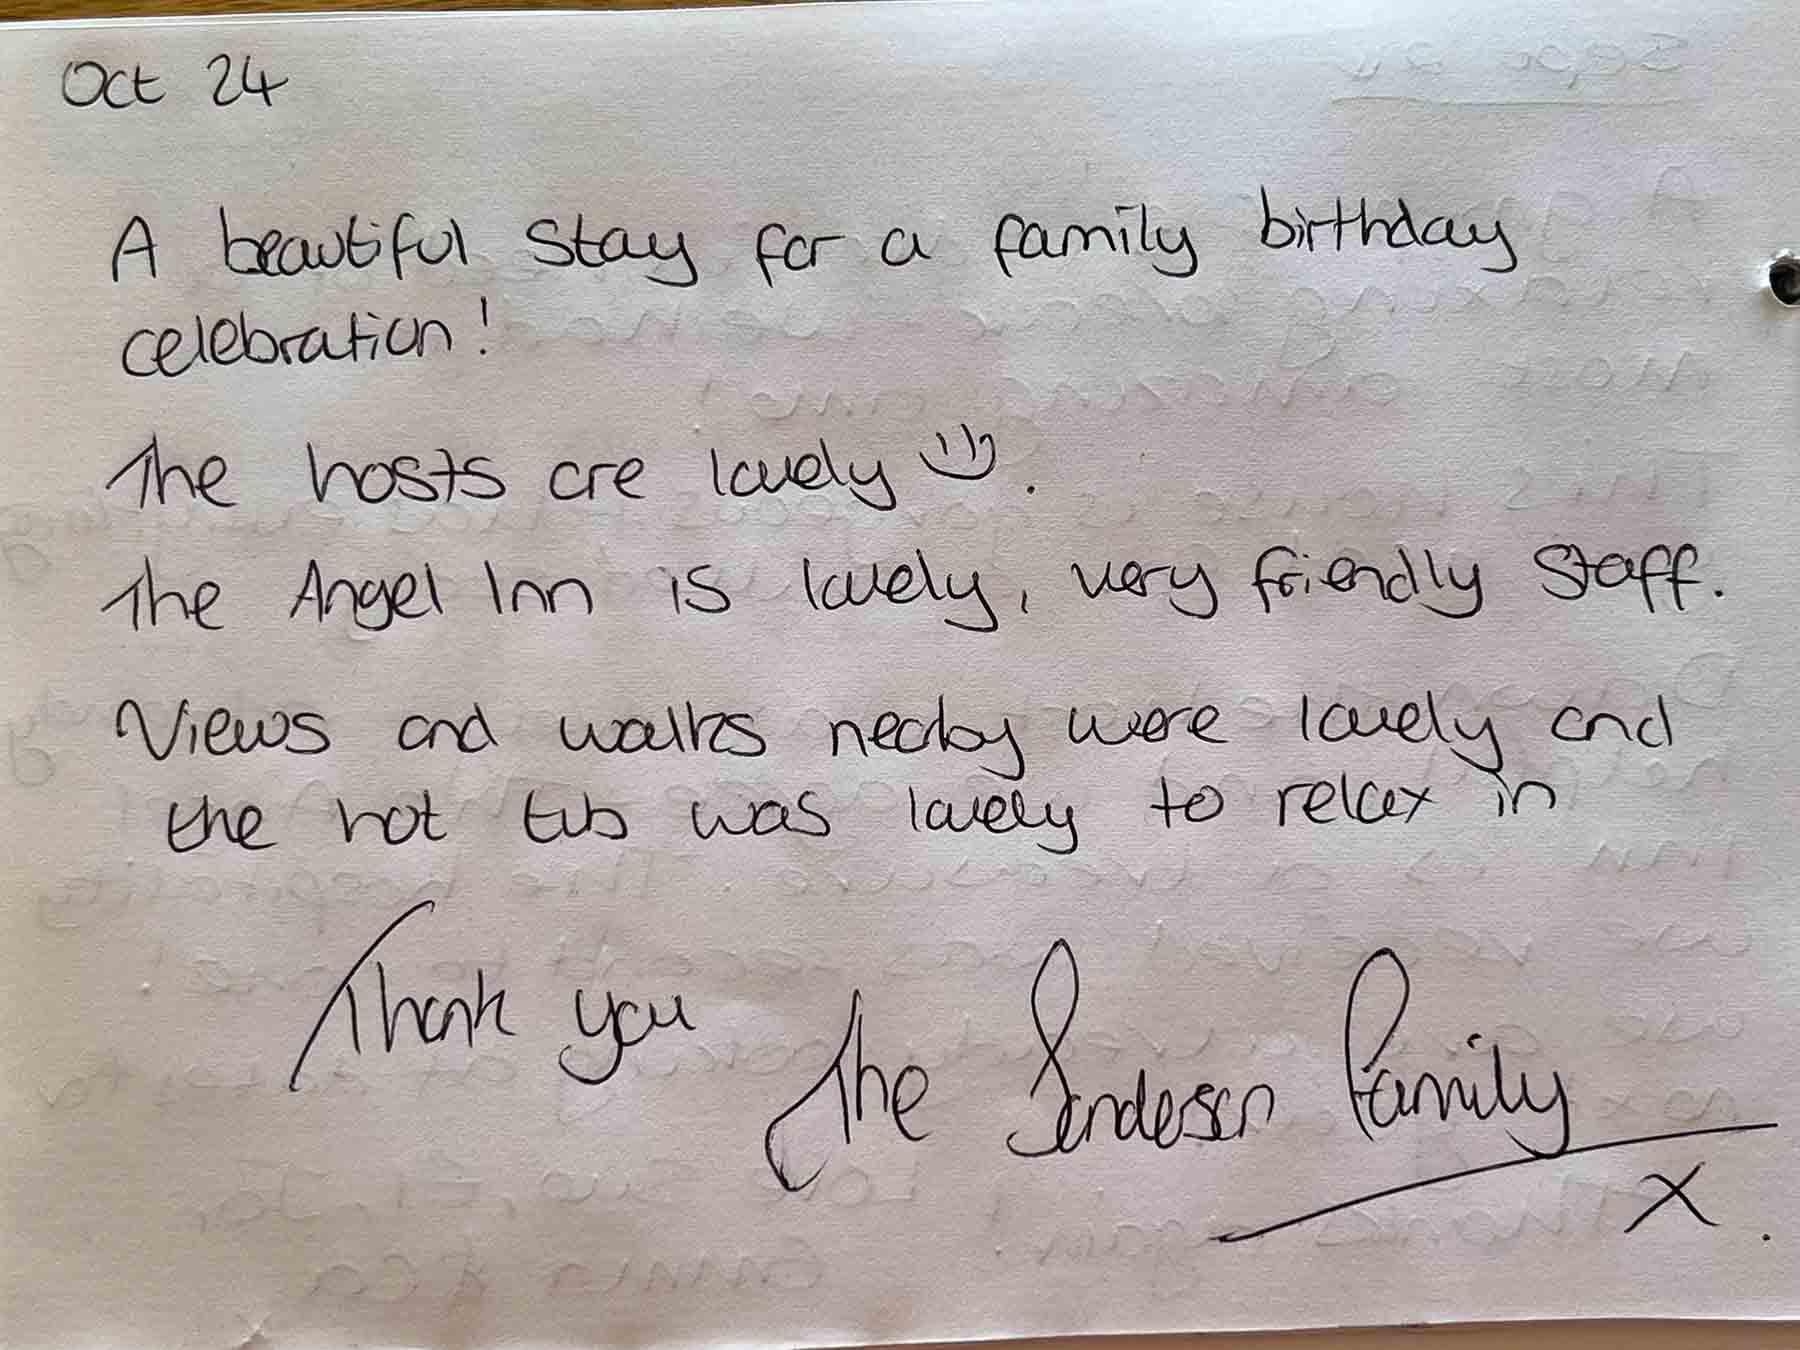 Oct 24
A beautiful stay for a family birthday
celebration!
The hosts are lovely :).
The Angel Inn is lovely, very friendly staff.
Views and walks nearby were lovely and
the hot tub was lovely to relax in
Thank you
The Sanderson Family
x.